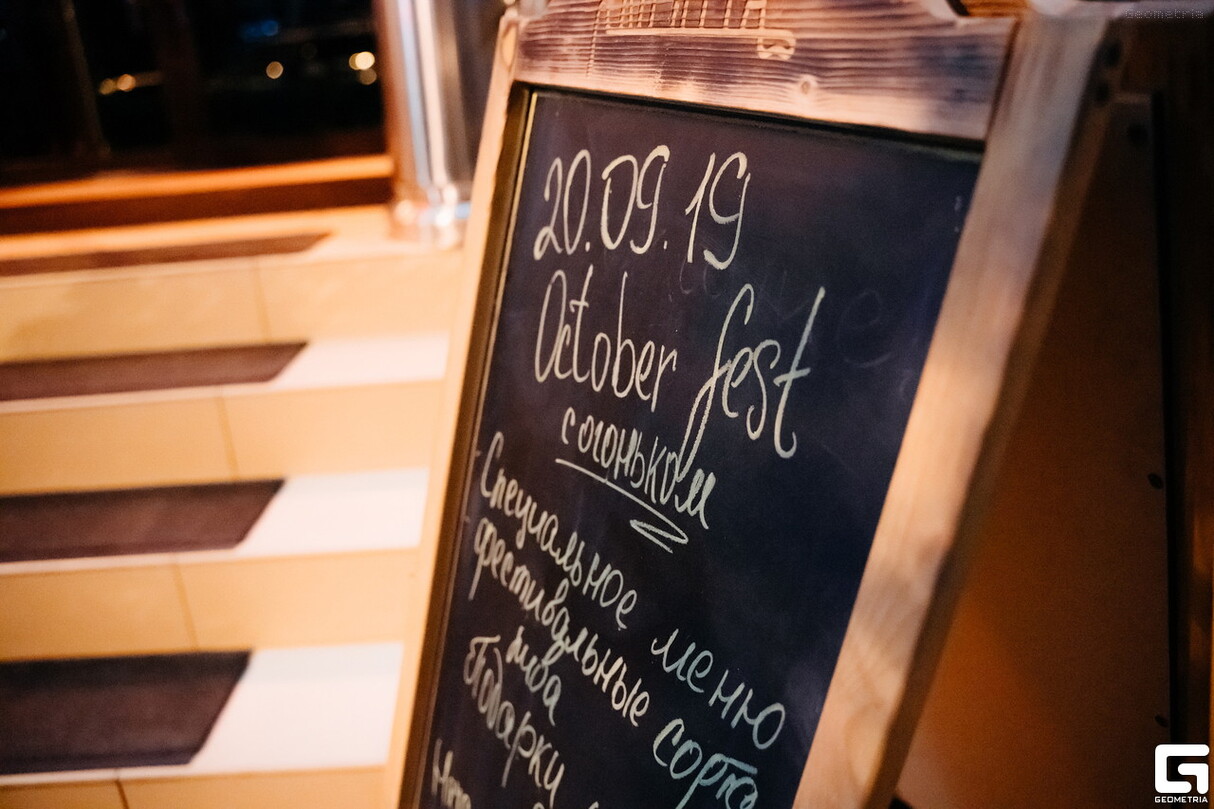 Geometria
20.09.19
October fest
с огоньком
Специальное меню
фестивальные сорта
пива
Подарки
GEOMETRIA